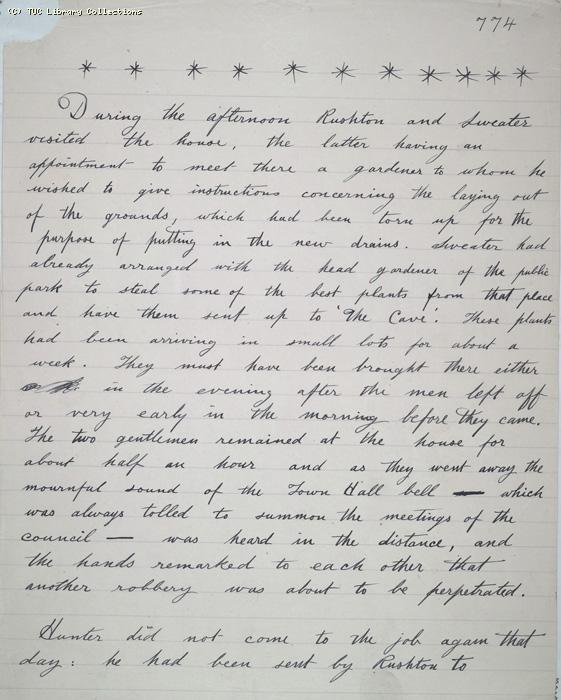 (C) TUC Library Collections
774
* * * * * * * * * * *
During the afternoon Rushton and Sweater
visited the house, the latter having an
appointment to meet there a gardener to whom he
wished to give instructions concerning the laying out
of the grounds, which had been torn up for the
purpose of putting in the new drains. Sweater had
already arranged with the head gardener of the public
park to steal some of the best plants from that place
and have them sent up to 'The Cave'. These plants
had been arriving in small lots for about a
week. They must have been brought there either
in the evening after the men left off
or very early in the morning before they came.
The two gentlemen remained at the house for
about half an hour and as they went away the
mournful sound of the Town Hall bell — which
was always tolled to summon the meetings of the
council — was heard in the distance, and
the hands remarked to each other that
another robbery was about to be perpetrated.
Hunter did not come to the job again that
day: he had been sent by Rushton to